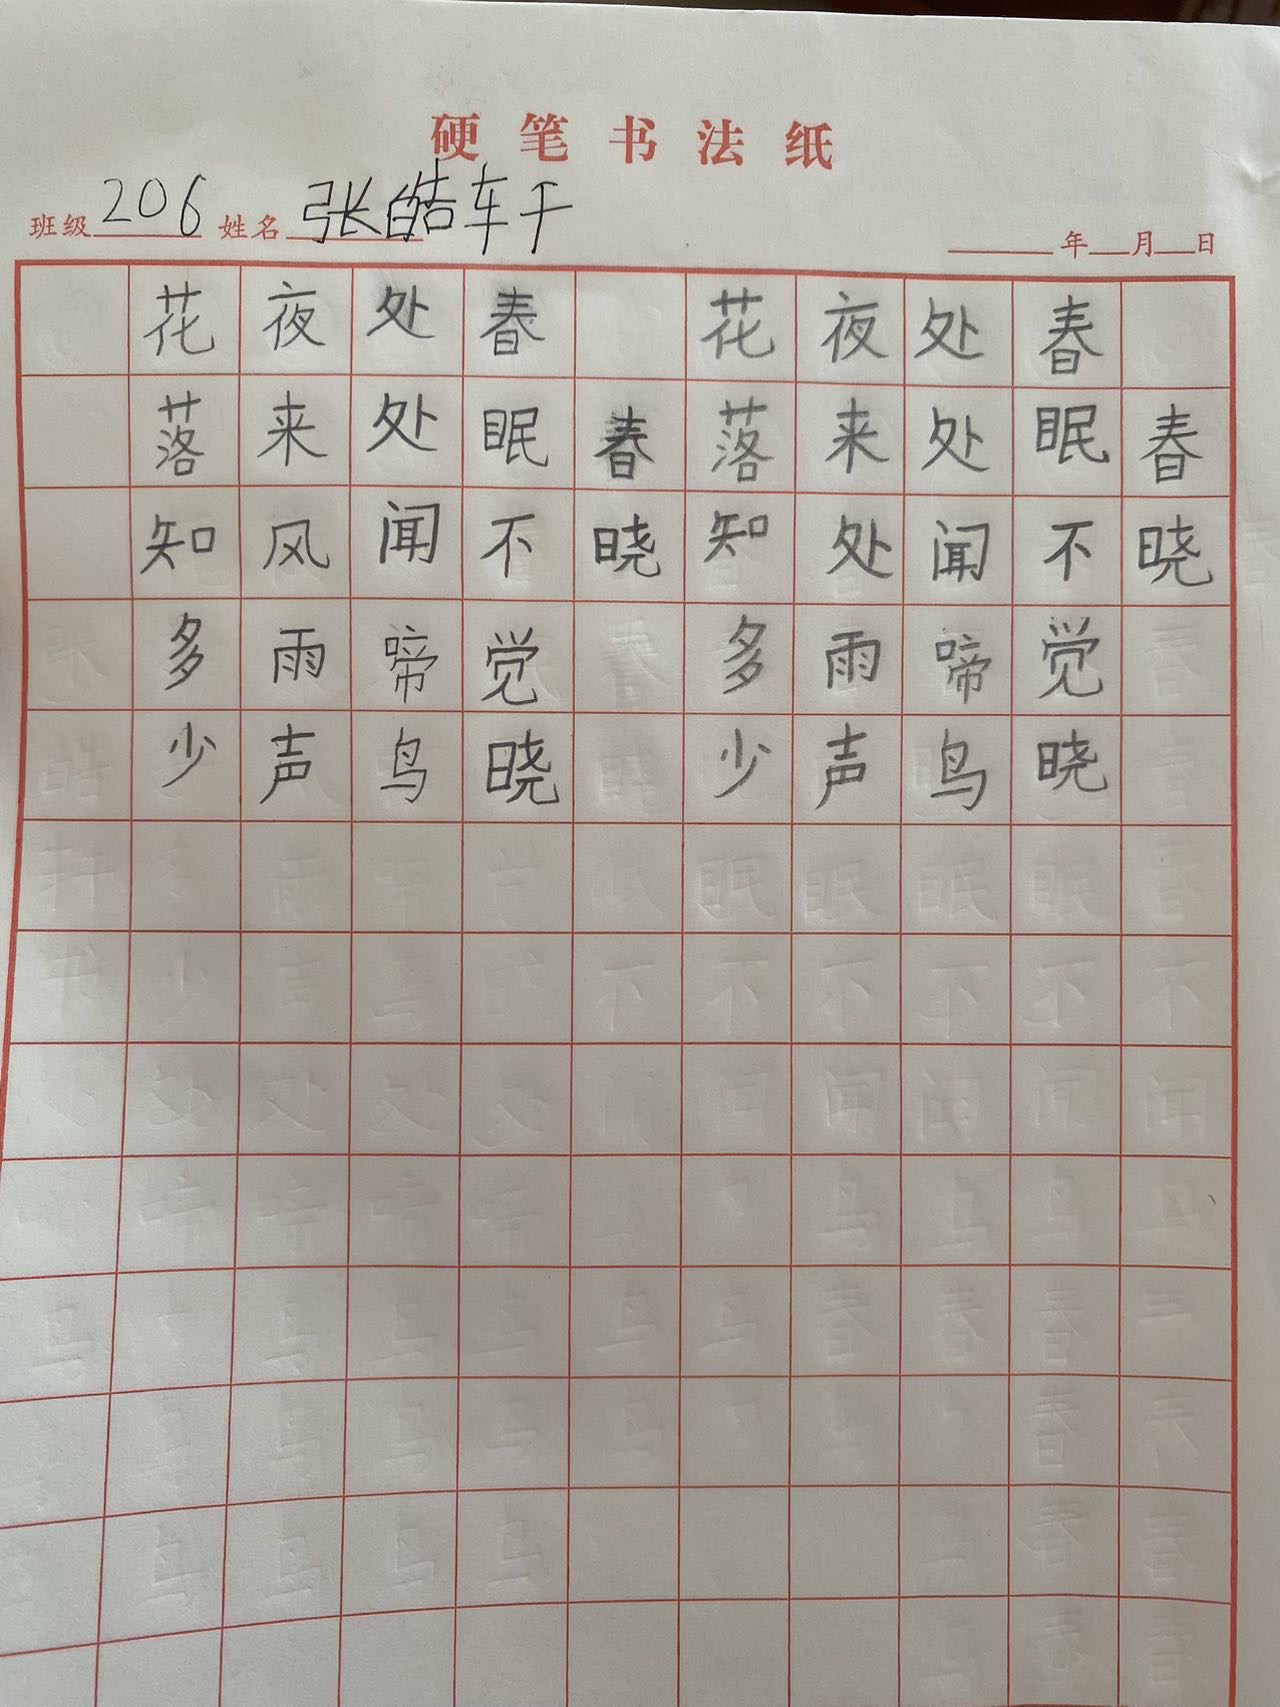 硬笔书法纸
班级 206 姓名 张皓轩 年 月 日
春晓
春眠不觉晓
处处闻啼鸟
夜来处雨声
花落知多少
春晓
春眠不觉晓
处处闻啼鸟
夜来风雨声
花落知多少